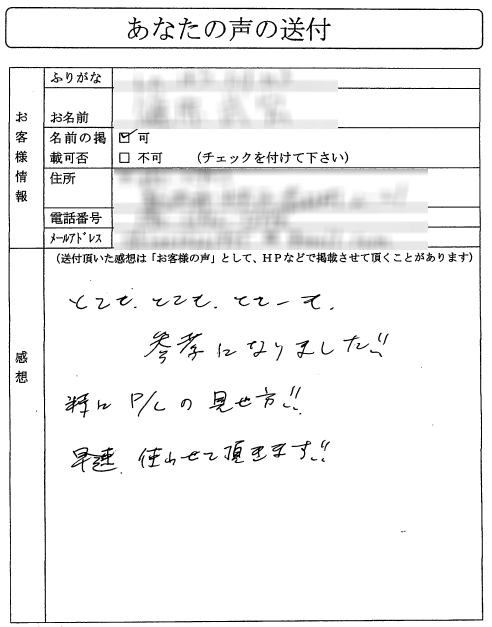 あなたの声の送付
お客様情報
ふりがな
お名前
名前の掲載可否
☑ 可
☐ 不可 (チェックを付けて下さい)
住所
電話番号
ﾒｰﾙｱﾄﾞﾚｽ
感想
(送付頂いた感想は「お客様の声」として、HPなどで掲載させて頂くことがあります)
とても、とても、とてーも、
参考になりました!!
特に P/L の見せ方!!
早速、使わせて頂きます!!